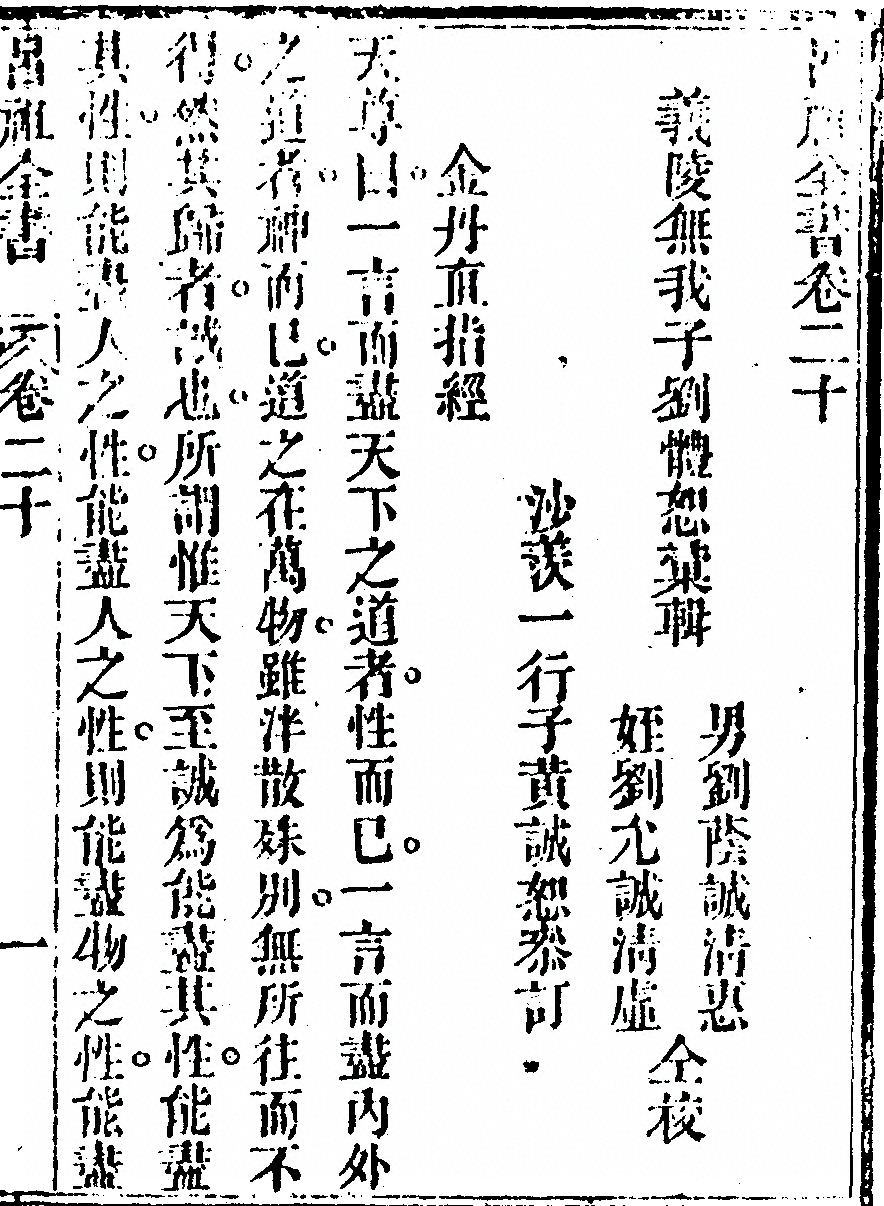 呂祖全書卷二十
義陵無我子劉體恕彙輯
男劉蔭誠清惠
姪劉允誠清虛
仝校
沙羨一行子黃誠恕叅訂
金丹直指經
天尊曰。一言而盡天下之道者。性而已。一言而盡內外
之道者。神而已。道之在萬物。雖泮散殊別。無所往而不
得。然其歸者。誠也。所謂惟天下至誠爲能盡其性。能盡
其性。則能盡人之性。能盡人之性。則能盡物之性。能盡
呂祖全書 卷二十 一